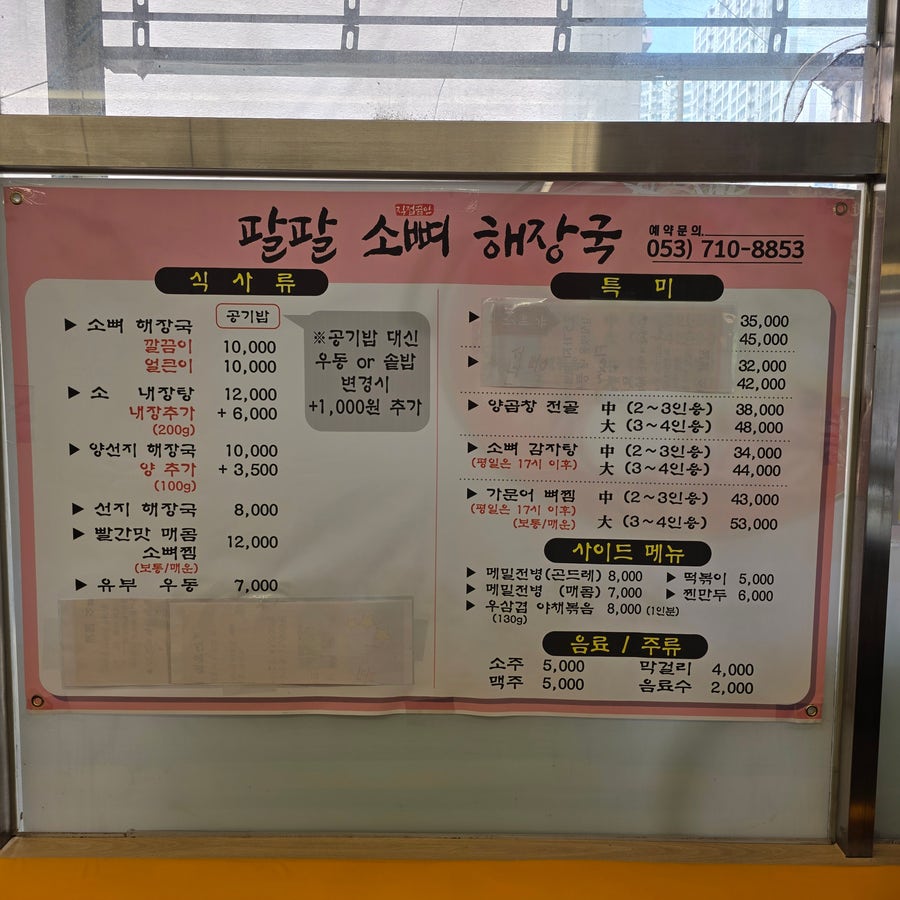 팔팔 소뼈 해장국
직접끓인
예약문의
053) 710-8853
식사류
공기밥
▶ 소뼈 해장국
깔끔이 10,000
얼큰이 10,000
※공기밥 대신
우동 or 솥밥
변경시
+1,000원 추가
▶ 소 내장탕 12,000
내장추가 + 6,000
(200g)
▶ 양선지 해장국 10,000
양 추가 + 3,500
(100g)
▶ 선지 해장국 8,000
▶ 빨간맛 매콤
소뼈찜 12,000
(보통/매운)
▶ 유부 우동 7,000
특미
▶ 35,000
45,000
▶ 32,000
42,000
▶ 양곱창 전골 中 (2~3인용) 38,000
大 (3~4인용) 48,000
▶ 소뼈 감자탕 中 (2~3인용) 34,000
(평일은 17시 이후) 大 (3~4인용) 44,000
▶ 가문어 뼈찜 中 (2~3인용) 43,000
(평일은 17시 이후)
(보통/매운) 大 (3~4인용) 53,000
사이드 메뉴
▶ 메밀전병(곤드레) 8,000 ▶ 떡볶이 5,000
▶ 메밀전병 (매콤) 7,000 ▶ 찐만두 6,000
▶ 우삼겹 야채볶음 8,000 (1인분)
(130g)
음료 / 주류
소주 5,000 막걸리 4,000
맥주 5,000 음료수 2,000